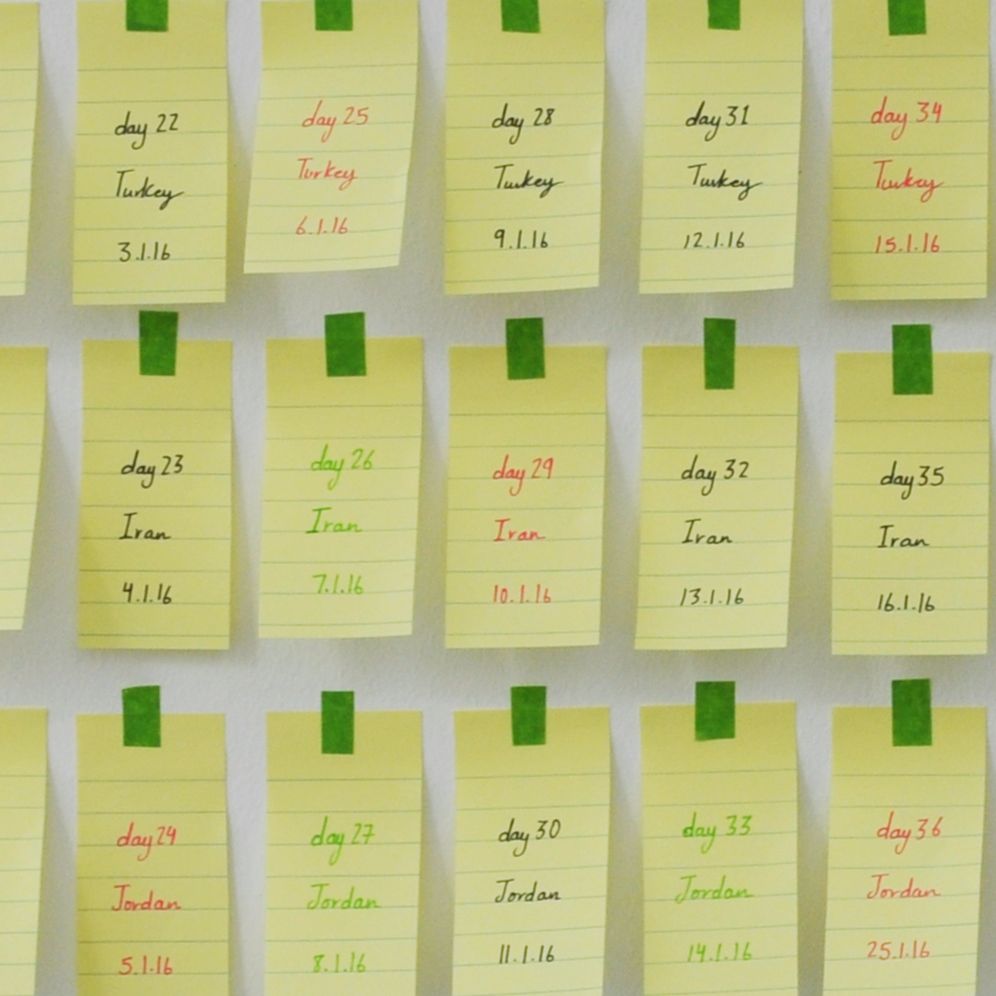 day 22
Turkey
3.1.16
day 25
Turkey
6.1.16
day 28
Turkey
9.1.16
day 31
Turkey
12.1.16
day 34
Turkey
15.1.16
day 23
Iran
4.1.16
day 26
Iran
7.1.16
day 29
Iran
10.1.16
day 32
Iran
13.1.16
day 35
Iran
16.1.16
day 24
Jordan
5.1.16
day 27
Jordan
8.1.16
day 30
Jordan
11.1.16
day 33
Jordan
14.1.16
day 36
Jordan
25.1.16